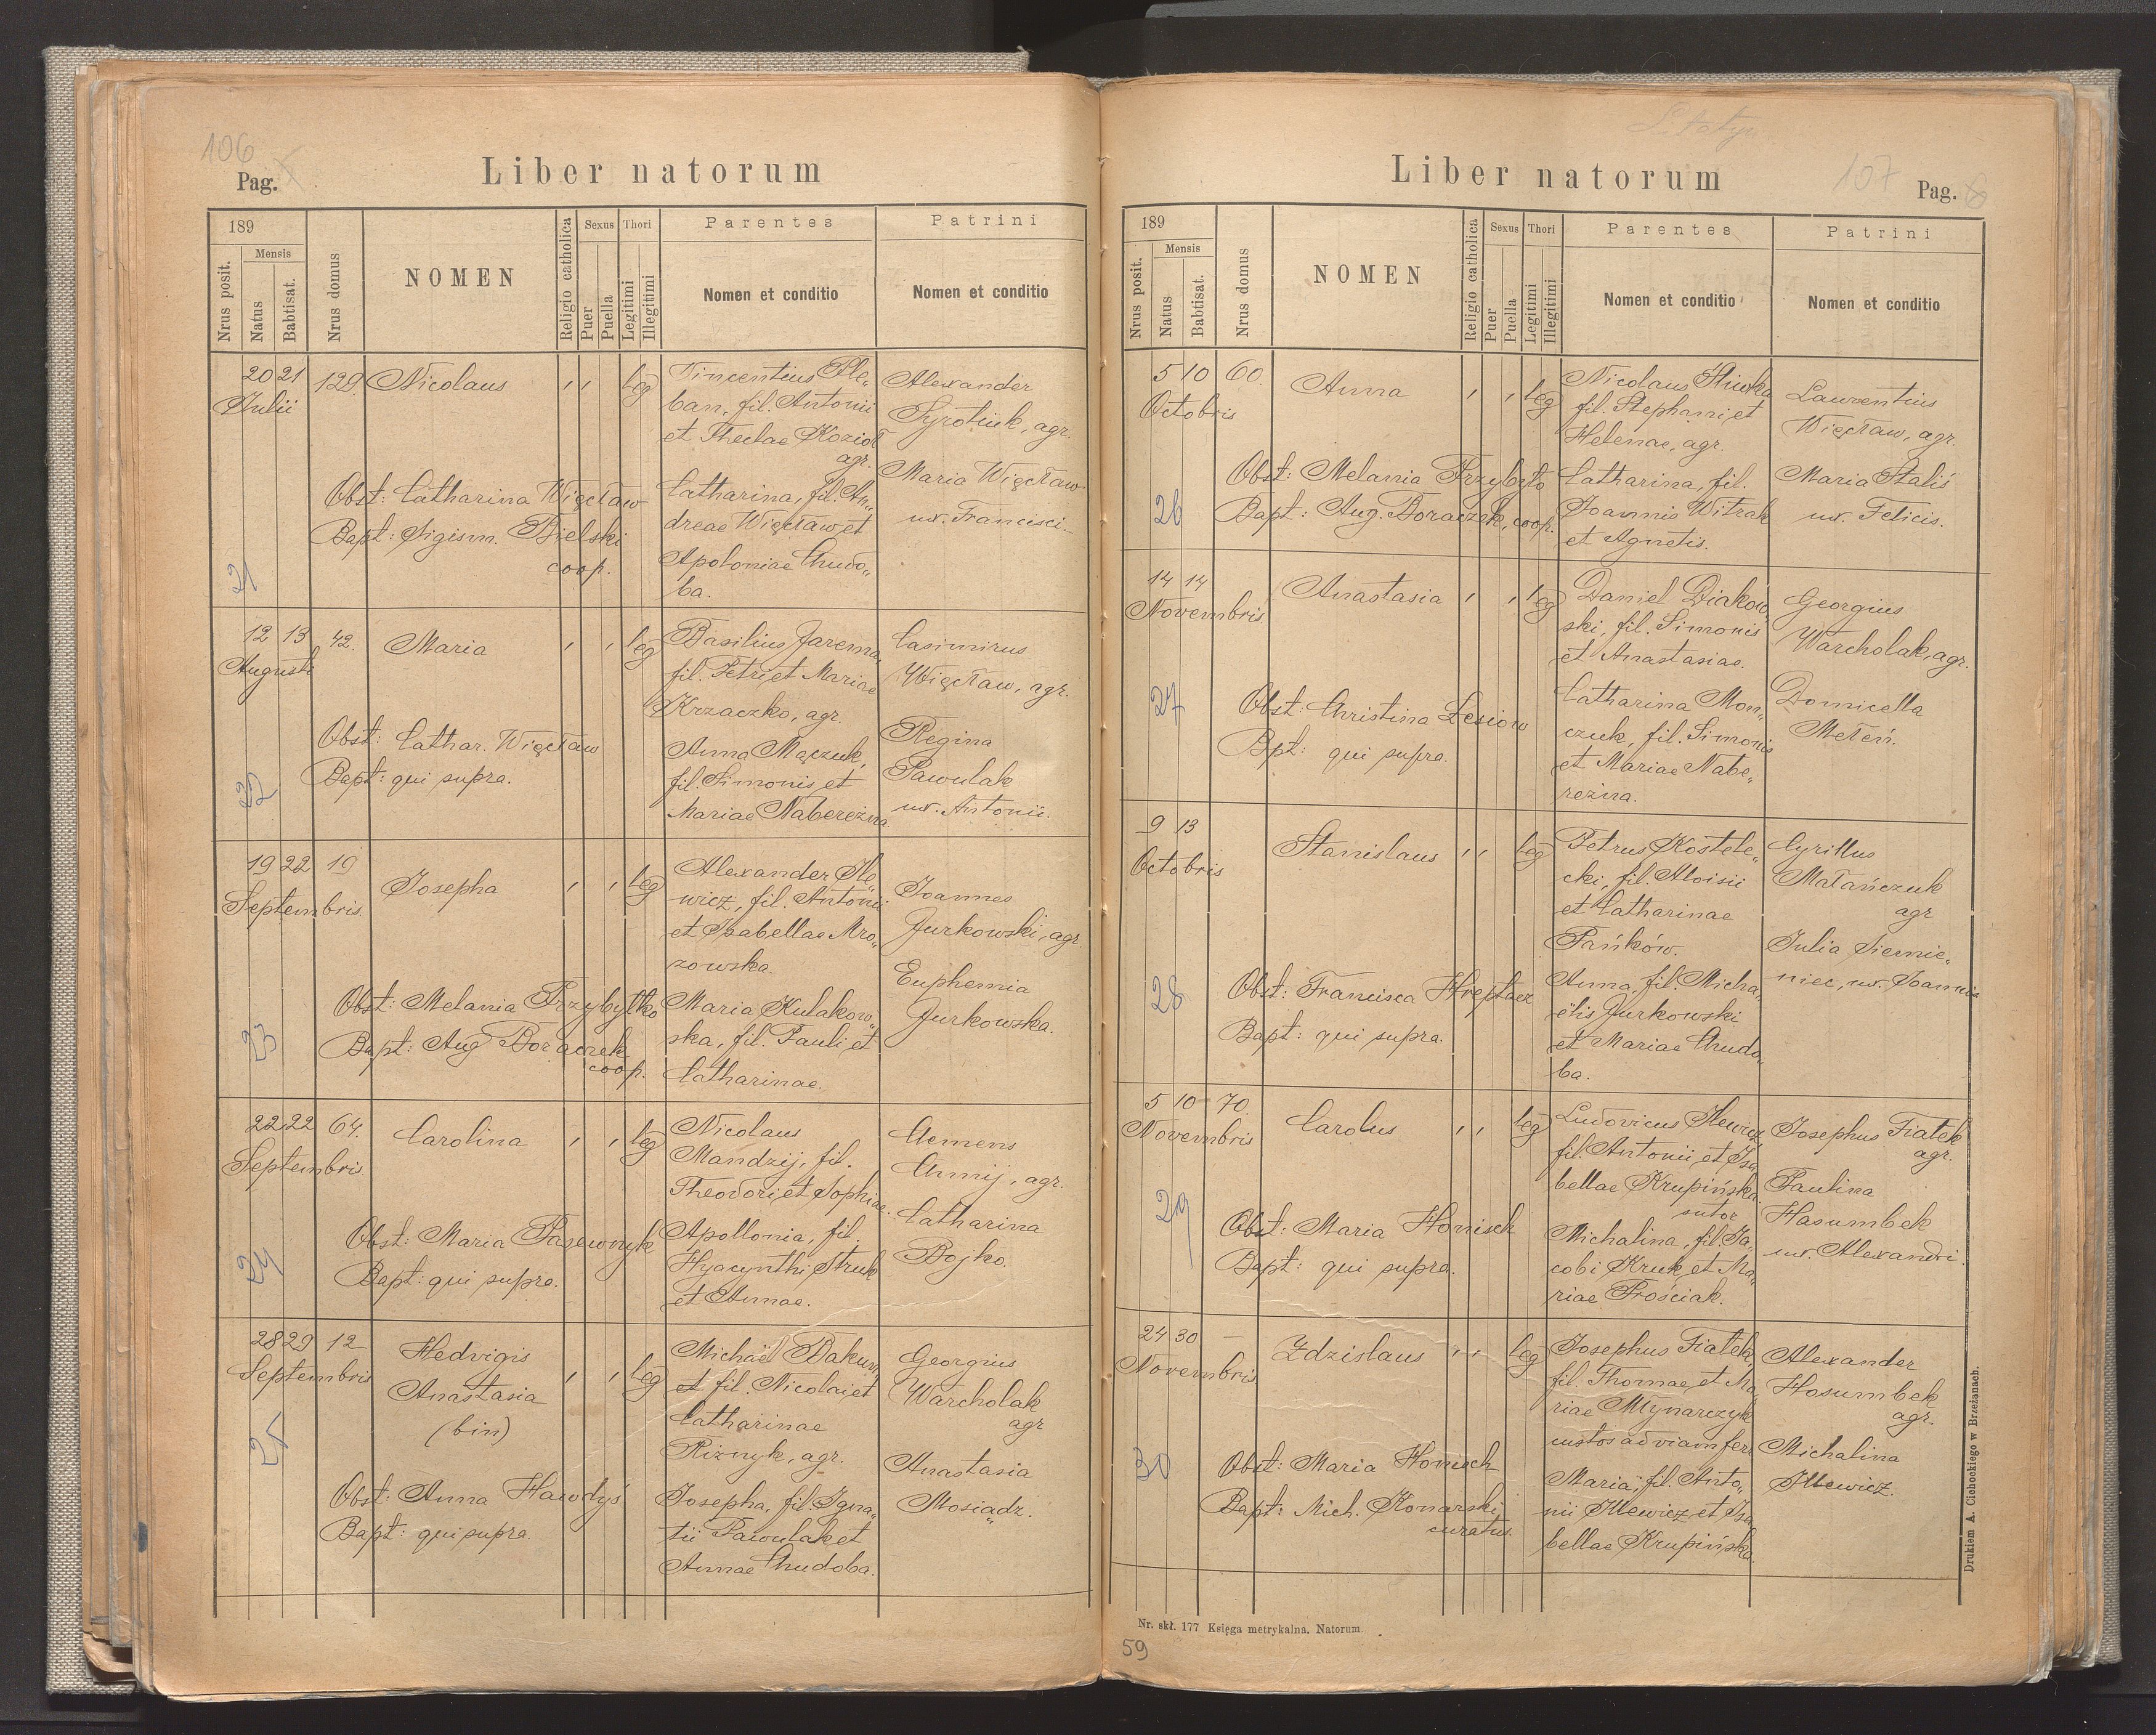 106
Pag.
Liber natorum
189
Mensis
Nrus posit.
Natus
Babtisat.
Nrus domus
NOMEN
Religio catholica
Sexus
Puer
Puella
Thori
Legitimi
Illegitimi
Parentes
Nomen et conditio
Patrini
Nomen et conditio
20 21 129 Nicolaus , , leg
Julii
Obst: Catharina Więcław
Bapt: Sigism. Bielski
coop.
21
Vincentius Ple„
ban, fil. Antonii
et Theclae Kozioł
agr.
Catharina, fil. An„
dreae Więcław et
Apoloniae Chudo„
ba.
Alexander
Syrotiuk, agr.
Maria Więcław
ux. Francisci
12 13 42. Maria , , leg
Augusti
Obst: Cathar. Więcław
Bapt: qui supra.
22
Basilius Jarema,
fil. Petri et Mariae
Krzaczko, agr.
Anna Mączuk,
fil. Simonis et
Mariae Nabereżna.
Casimirus
Więcław, agr.
Regina
Pawulak
ux. Antonii.
19 22 19 Josepha , , leg
Septembris.
Obst: Melania Przybyłko
Bapt: Aug Doraczek
coop.
23
Alexander Ile„
wicz, fil. Antonii
et Isabellae Mro„
zowska.
Maria Kulakow„
ska, fil. Pauli et
Catharinae.
Joannes
Jurkowski, agr.
Euphemia
Jurkowska.
22 22 64. Carolina , , leg
Septembris
Obst: Maria Pasewnyk
Bapt: qui supra.
24
Nicolaus
Mandzij, fil.
Theodori et Sophiae.
Apollonia, fil.
Hyacynthi Struk
et Annae.
Clemens
Chmij, agr.
Catharina
Bojko.
28 29 12 Hedvigis , , leg
Septembris
Anastasia
(bin)
Obst: Anna Hawdyś
Bapt: qui supra.
25
Michaël Bakun,
et fil. Nicolai et
Catharinae
Riżnyk, agr.
Josepha, fil. Igna„
tii Pawulak et
Annae Chudoba.
Georgius
Warcholak
agr
Anastasia
Mosiądz.
107
Liber natorum
Pag.
189
Mensis
Nrus posit.
Natus
Babtisat.
Nrus domus
NOMEN
Religio catholica
Sexus
Puer
Puella
Thori
Legitimi
Illegitimi
Parentes
Nomen et conditio
Patrini
Nomen et conditio
5 10 60. Anna , , leg
Octobris
Obst: Melania Przybyło
Bapt: Aug. Doraczek, coop.
26
Nicolaus Hiwka
fil. Stephani et
Helenae, agr.
Catharina, fil.
Joannis Witrak
et Agnetis.
Laurentius
Więcław, agr.
Maria Staliś
ux. Felicis.
14 14 Anastasia , , leg
Novembris.
Obst: Christina Lesiow
Bpt: qui supra.
27
Daniel Diakow„
ski, fil. Simonis
et Anastasiae.
Catharina Mon„
czuk, fil. Simonis
et Mariae Nabe„
reżna.
Georgius
Warcholak, agr.
Domicella
Meleń.
9 13 Stanislaus , , leg
Octobris
Obst: Francisca Hreptacz
Bapt: qui supra.
28
Petrus Kostele„
cki, fil. Aloisii
et Catharinae
Pańków.
Anna, fil. Micha„
ëlis Jurkowski
et Mariae Chudo„
ba.
Cyrillus
Małańczuk
agr
Julia Siemie„
niec, ux. Joannis
5 10 70. Carolus , , leg
Novembris
Obst: Maria Honisch
Bapt: qui supra.
29
Ludovicus Ilewicz
fil. Antonii et Isa
bellae Krupińska.
sutor
Michalina, fil. Ja„
cobi Kruk et Ma„
riae Prościak.
Josephus Fiatek
agr.
Paulina
Hasumbek
ux. Alexandri.
24 30 — Zdzislaus , , leg
Novembris
Obst: Maria Honisch
Bapt: Mich. Konarski
curatus.
30
Josephus Fiatek,
fil. Thomae et Ma„
riae Młynarczyk
custos ad viam ferr
Maria, fil. Anto„
nii Illewicz et Isa
bellae Krupińska
Alexander
Hasumbek
agr.
Michalina
Illewicz.
Drukiem A. Ciehockiego w Brzeżanach.
Nr. skł. 177 Księga metrykalna. Natorum.
59